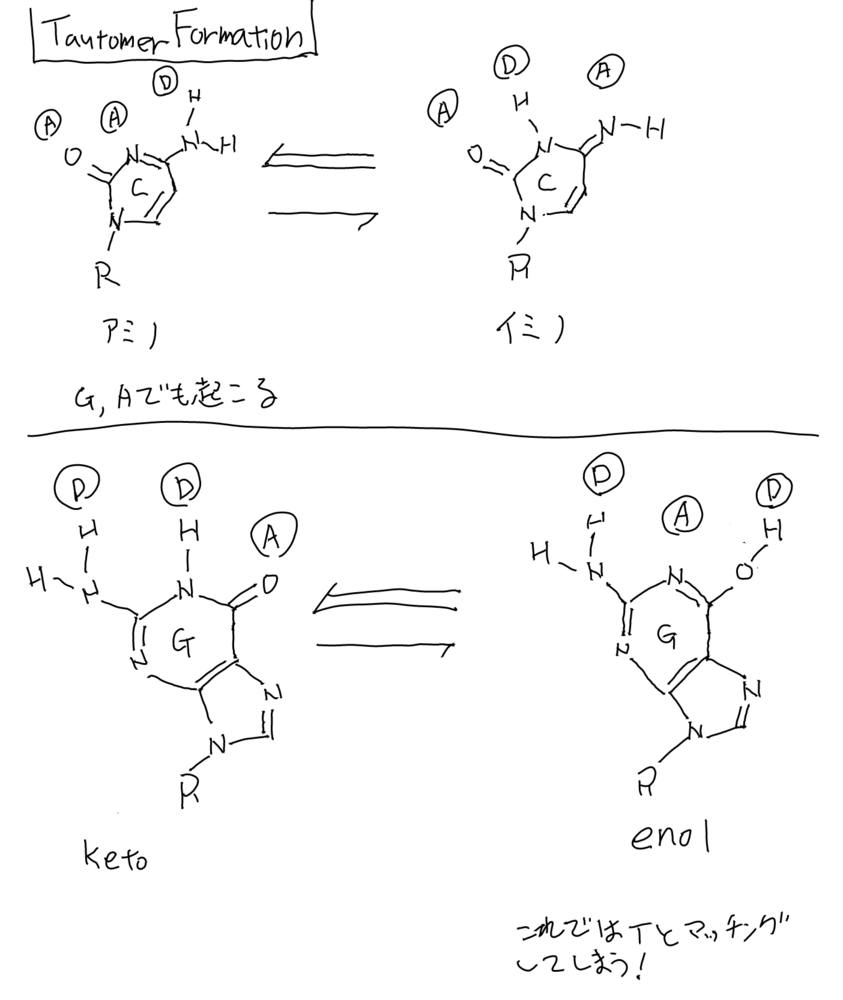 Tautomer Formation
D
A A H
O N N-H
C
N
R
アミノ
D A
A H
O N N-H
C
N
R
イミノ
G, Aでも起こる
D D
H H A
H-N N O
G
N N
N
R
keto
D D
H A H
H-N N O
G
N N
N
R
enol
これではTとマッチング
してしまう!